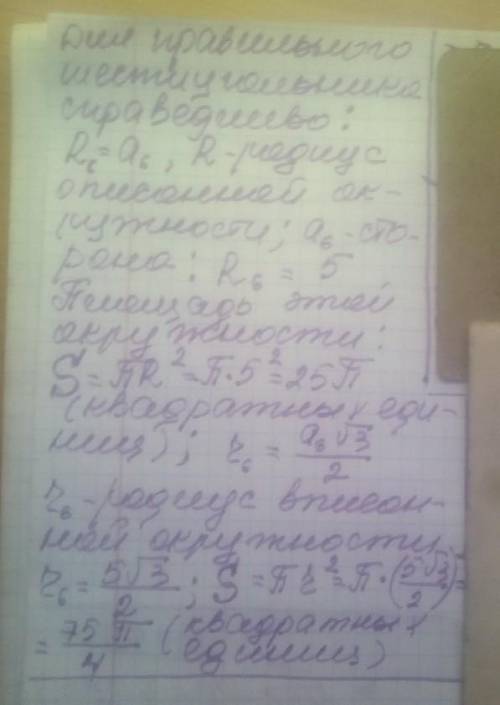 Для правильного
шестиугольника
справедливо:
R₆=a₆, R-радиус
описанной ок-
ружности; a₆-сто-
рона: R₆ = 5
Площадь этой
окружности:
S=ПR²=П·5²=25П
(квадратных еди-
ниц); r₆ = a₆√3/2
r₆-радиус вписан-
ной окружности
r₆ = 5√3/2; S=Пr²=П·(5√3/2)=
= 75П/4 (квадратных
единиц)